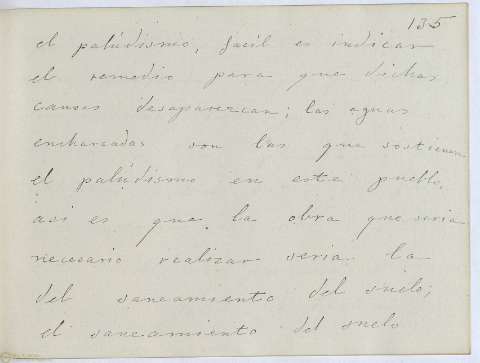 135
el palúdismo, facil es indicar
el remedio para que dichas
causas desaparezcan; las aguas
encharcadas son las que sostienen
el palúdismo en este pueblo,
asi es que la obra que seria
necesario realizar seria la
del saneamiento del suelo;
el saneamiento del suelo